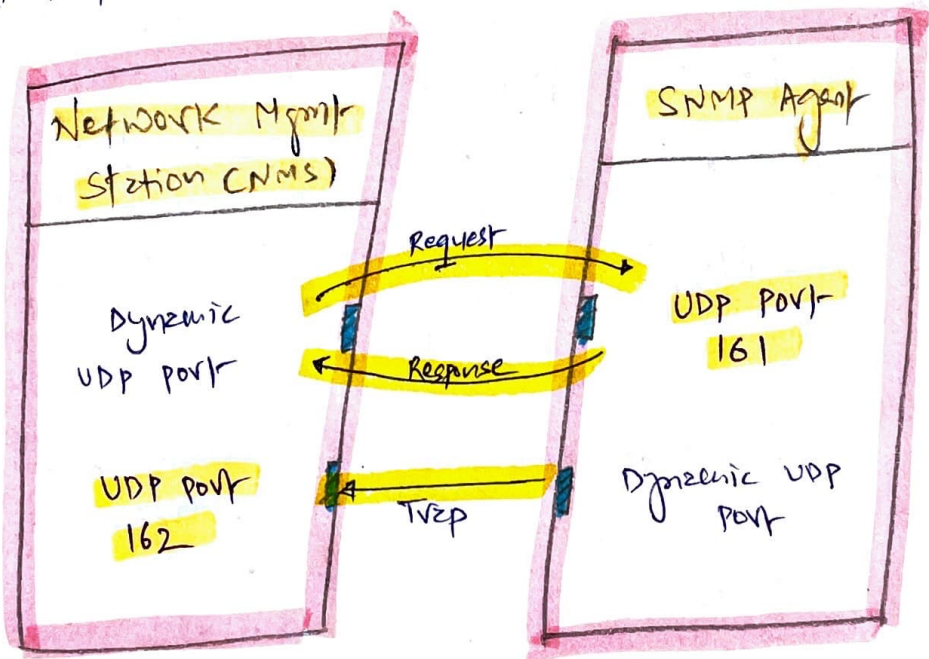 Network Mgmt
Station (NMS)
SNMP Agent
Request
Dynamic
UDP port
UDP port
161
Response
UDP port
162
Trap
Dynamic UDP
port